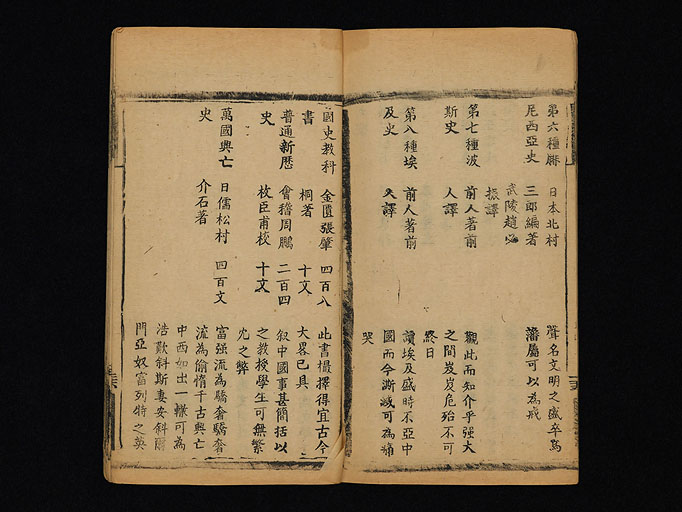 第六種腓 日本北村 聲名文明之盛卒為
尼西亞史 三郎編著 藩屬可以為戒
武陵趙必
振譯
第七種波 前人著前 觀此而知介乎強大
斯史 人譯 之間岌岌危殆不可
終日
第八種埃 前人著前 讀埃及盛時不亞中
及史 人譯 國而今澌滅可為痛
哭
國史教科 金匱張肇 四百八 此書撮擇得宜古今
書 桐著 十文 大畧已具
普通新歷 會稽周鵬 二百四 叙中國事甚簡括以
史 枚臣甫校 十文 之教授學生可無繁
冗之弊
萬國興亡 日儒松村 四百文 富强流為驕奢驕奢
史 介石著 流為偷惰千古興亡
中西如出一轍可為
浩歎斜斯妻安斜爾
門亞奴富列特之英